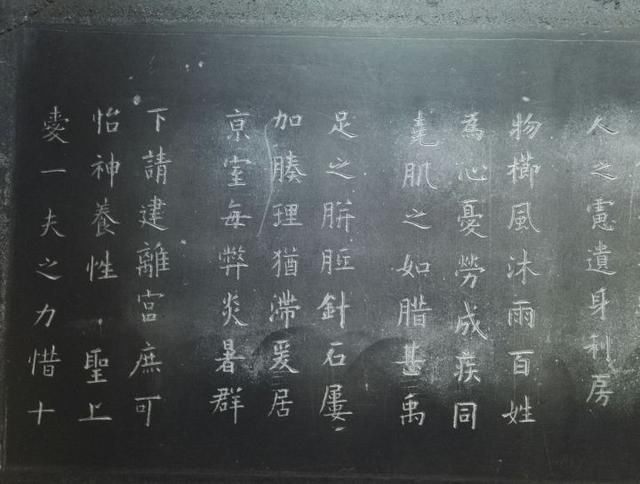 人之憲遺身利房
物櫛風沐雨百姓
為心憂勞成疾同
堯肌之如腊甚禹
足之胼胝針石屢〻
加腠理猶滯爰居
京室每弊炎暑群
下請建離宮庶可
怡神養性聖上
愛一夫之力惜十